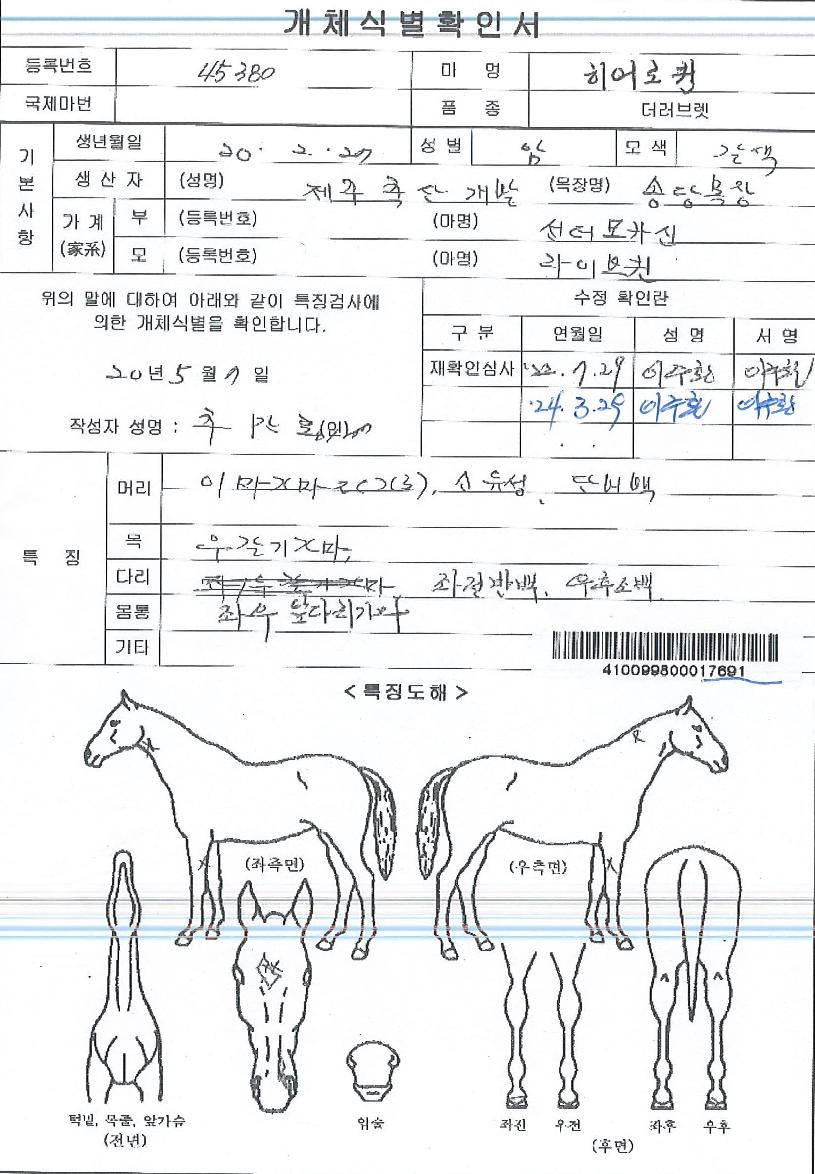 개체식별확인서
등록번호 45380 마 명 히어로퀸
국제마번 품 종 더러브렛
기본사항
생년월일 20. 2. 27 성별 암 모색 갈색
생산자 (성명) 제주축산개발 (목장명) 송당목장
가계(家系) 부 (등록번호) (마명) 선더모카신
모 (등록번호) (마명) 라이브퀸
위의 말에 대하여 아래와 같이 특징검사에
의한 개체식별을 확인합니다.
20년 5월 7일
작성자 성명 : (인)
수정 확인란
구 분 연월일 성 명 서 명
재확인심사 '22. 7. 29 이주환 이주환
'24. 3. 29 이주환 이주환
특 징
머리 유성, 단비백
목 우갈기가마,
다리 좌전반백, 우후소백
몸통 좌우 앞다리가마
기타
410099800017691
< 특징도해 >
(좌측면) (우측면)
턱밑, 목줄, 앞가슴
(전면)
위술
좌전 우전 좌후 우후
(후면)